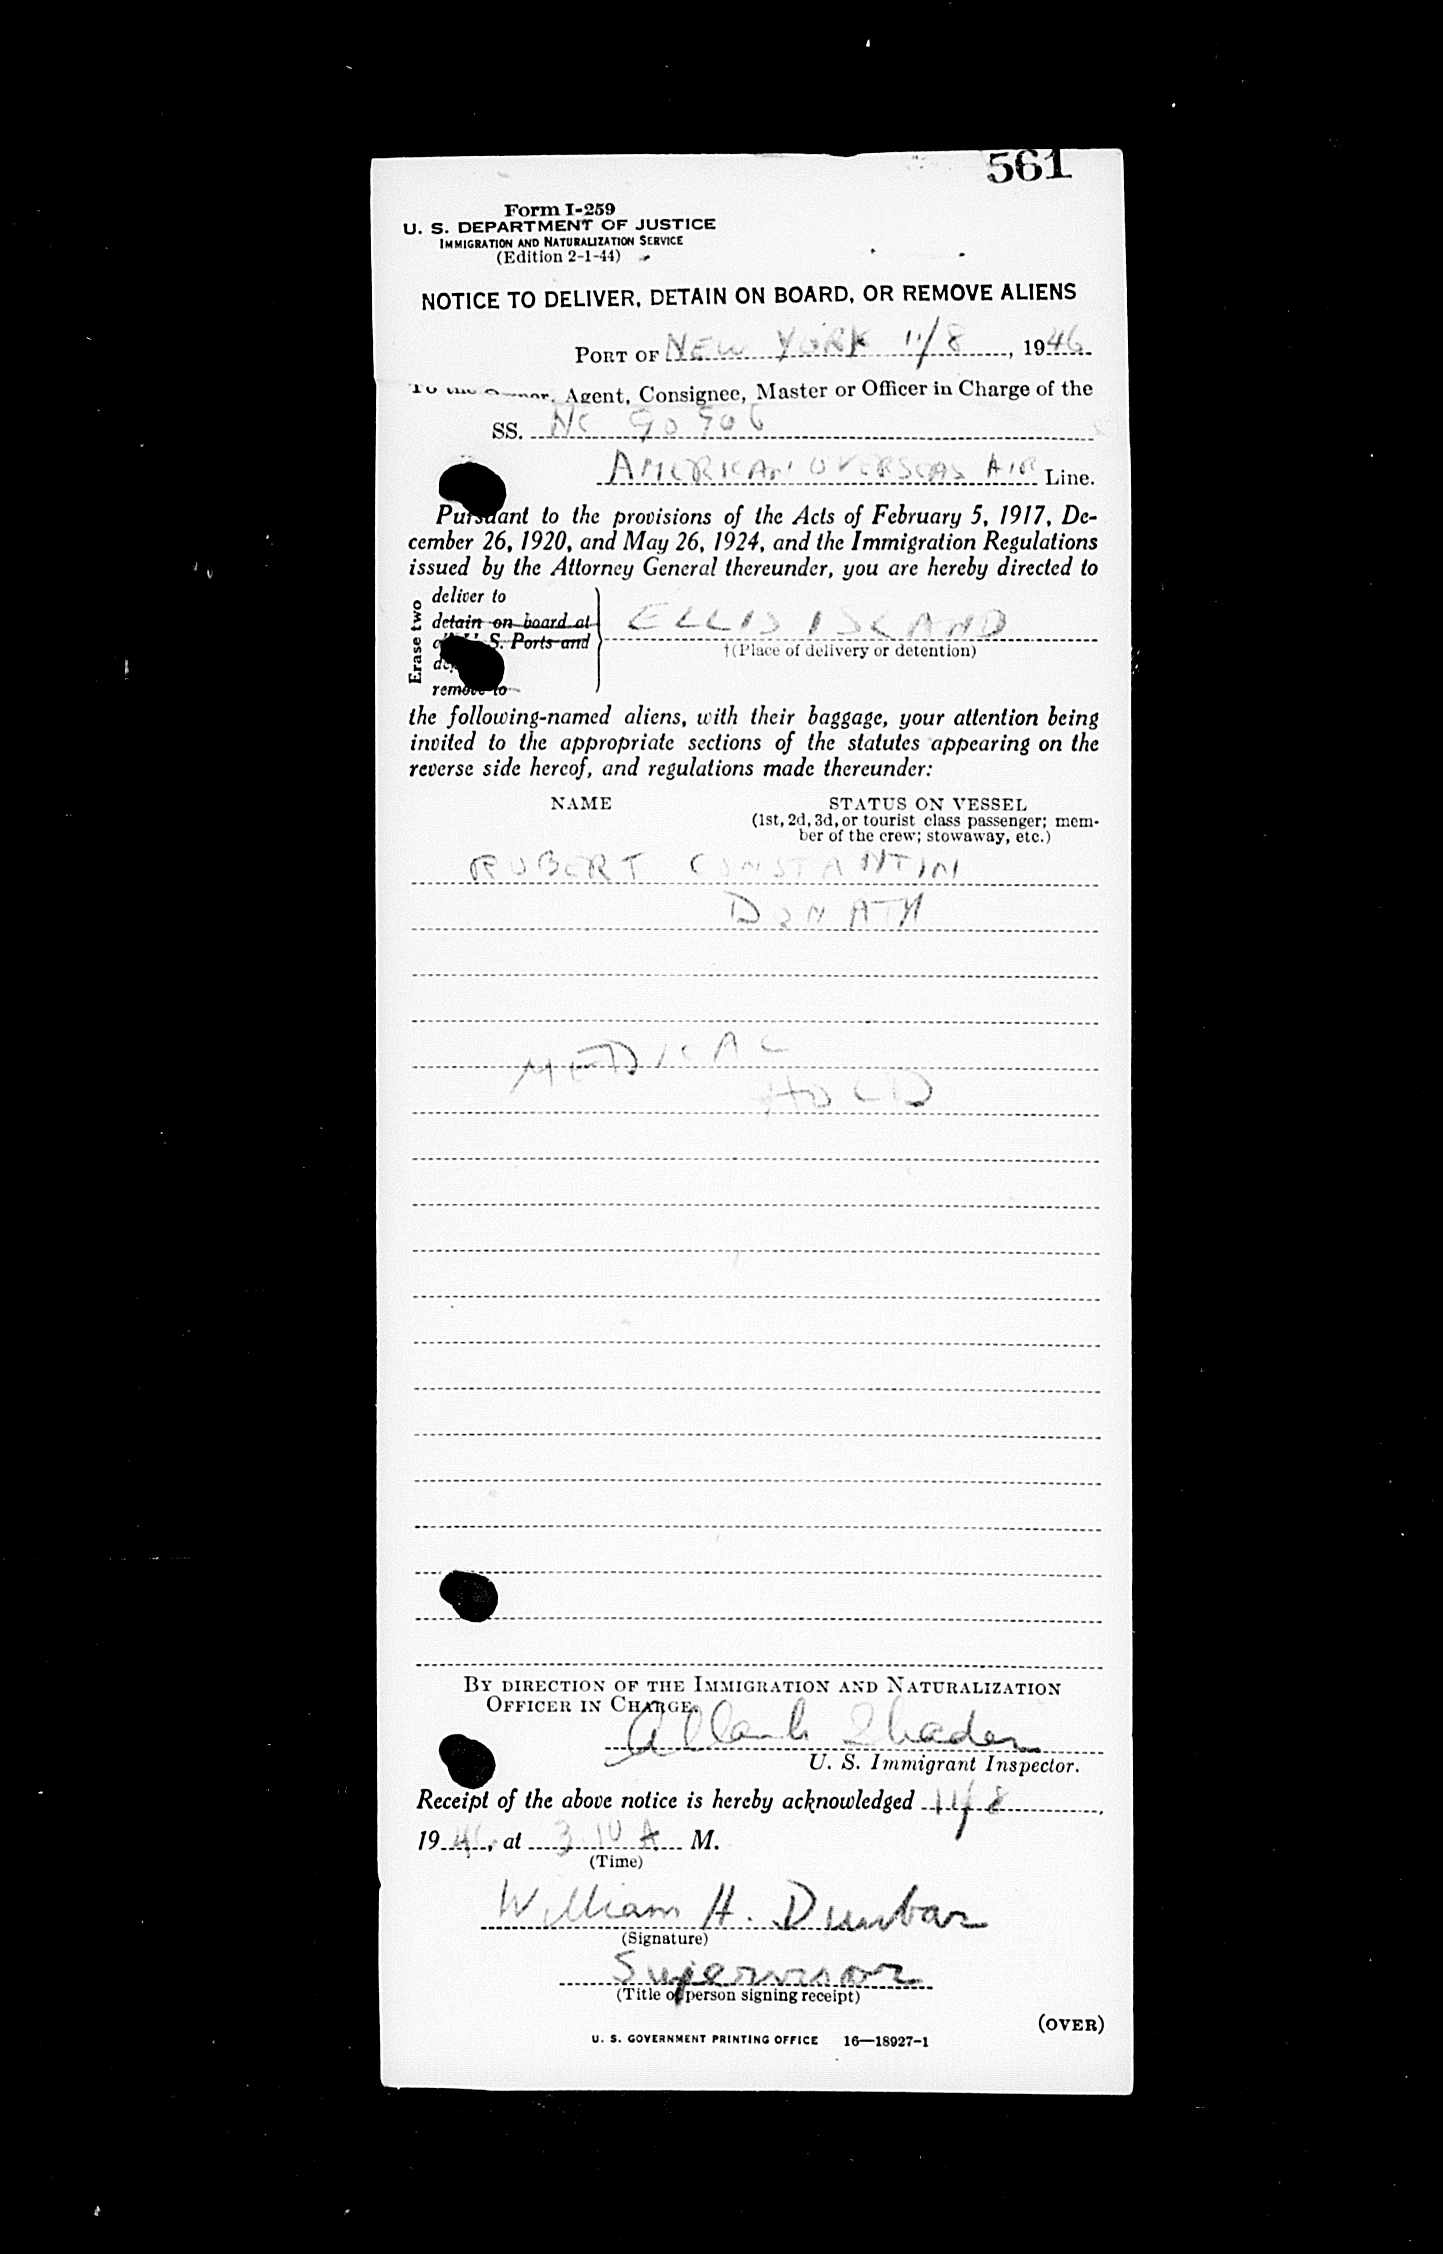 561
Form I-259
U. S. DEPARTMENT OF JUSTICE
IMMIGRATION AND NATURALIZATION SERVICE
(Edition 2-1-44)
NOTICE TO DELIVER, DETAIN ON BOARD, OR REMOVE ALIENS
PORT OF NEW YORK 11/8, 1946
To the Owner, Agent, Consignee, Master or Officer in Charge of the
SS. NC 90906
AMERICAN OVERSEAS AIR Line.
Pursuant to the provisions of the Acts of February 5, 1917, De-
cember 26, 1920, and May 26, 1924, and the Immigration Regulations
issued by the Attorney General thereunder, you are hereby directed to
Erase two
deliver to
detain on board at
S. Ports and
remove to
ELLIS ISLAND
†(Place of delivery or detention)
the following-named aliens, with their baggage, your attention being
invited to the appropriate sections of the statutes appearing on the
reverse side hereof, and regulations made thereunder:
NAME STATUS ON VESSEL
(1st, 2d, 3d, or tourist class passenger; mem-
ber of the crew; stowaway, etc.)
ROBERT CONSTANTIN
DONATH
MEDICAL
HOLD
BY DIRECTION OF THE IMMIGRATION AND NATURALIZATION
OFFICER IN CHARGE.
U. S. Immigrant Inspector.
Receipt of the above notice is hereby acknowledged 11/8,
1946, at 3:10 A M.
(Time)
William H. Dunbar
(Signature)
Supervisor
(Title of person signing receipt)
(OVER)
U. S. GOVERNMENT PRINTING OFFICE 16—18927-1